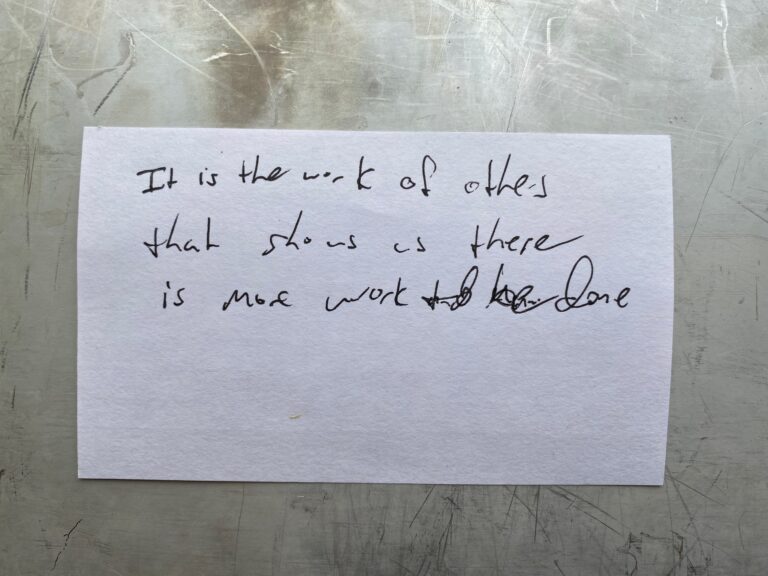 It is the work of others
that shows us there
is more work to be done